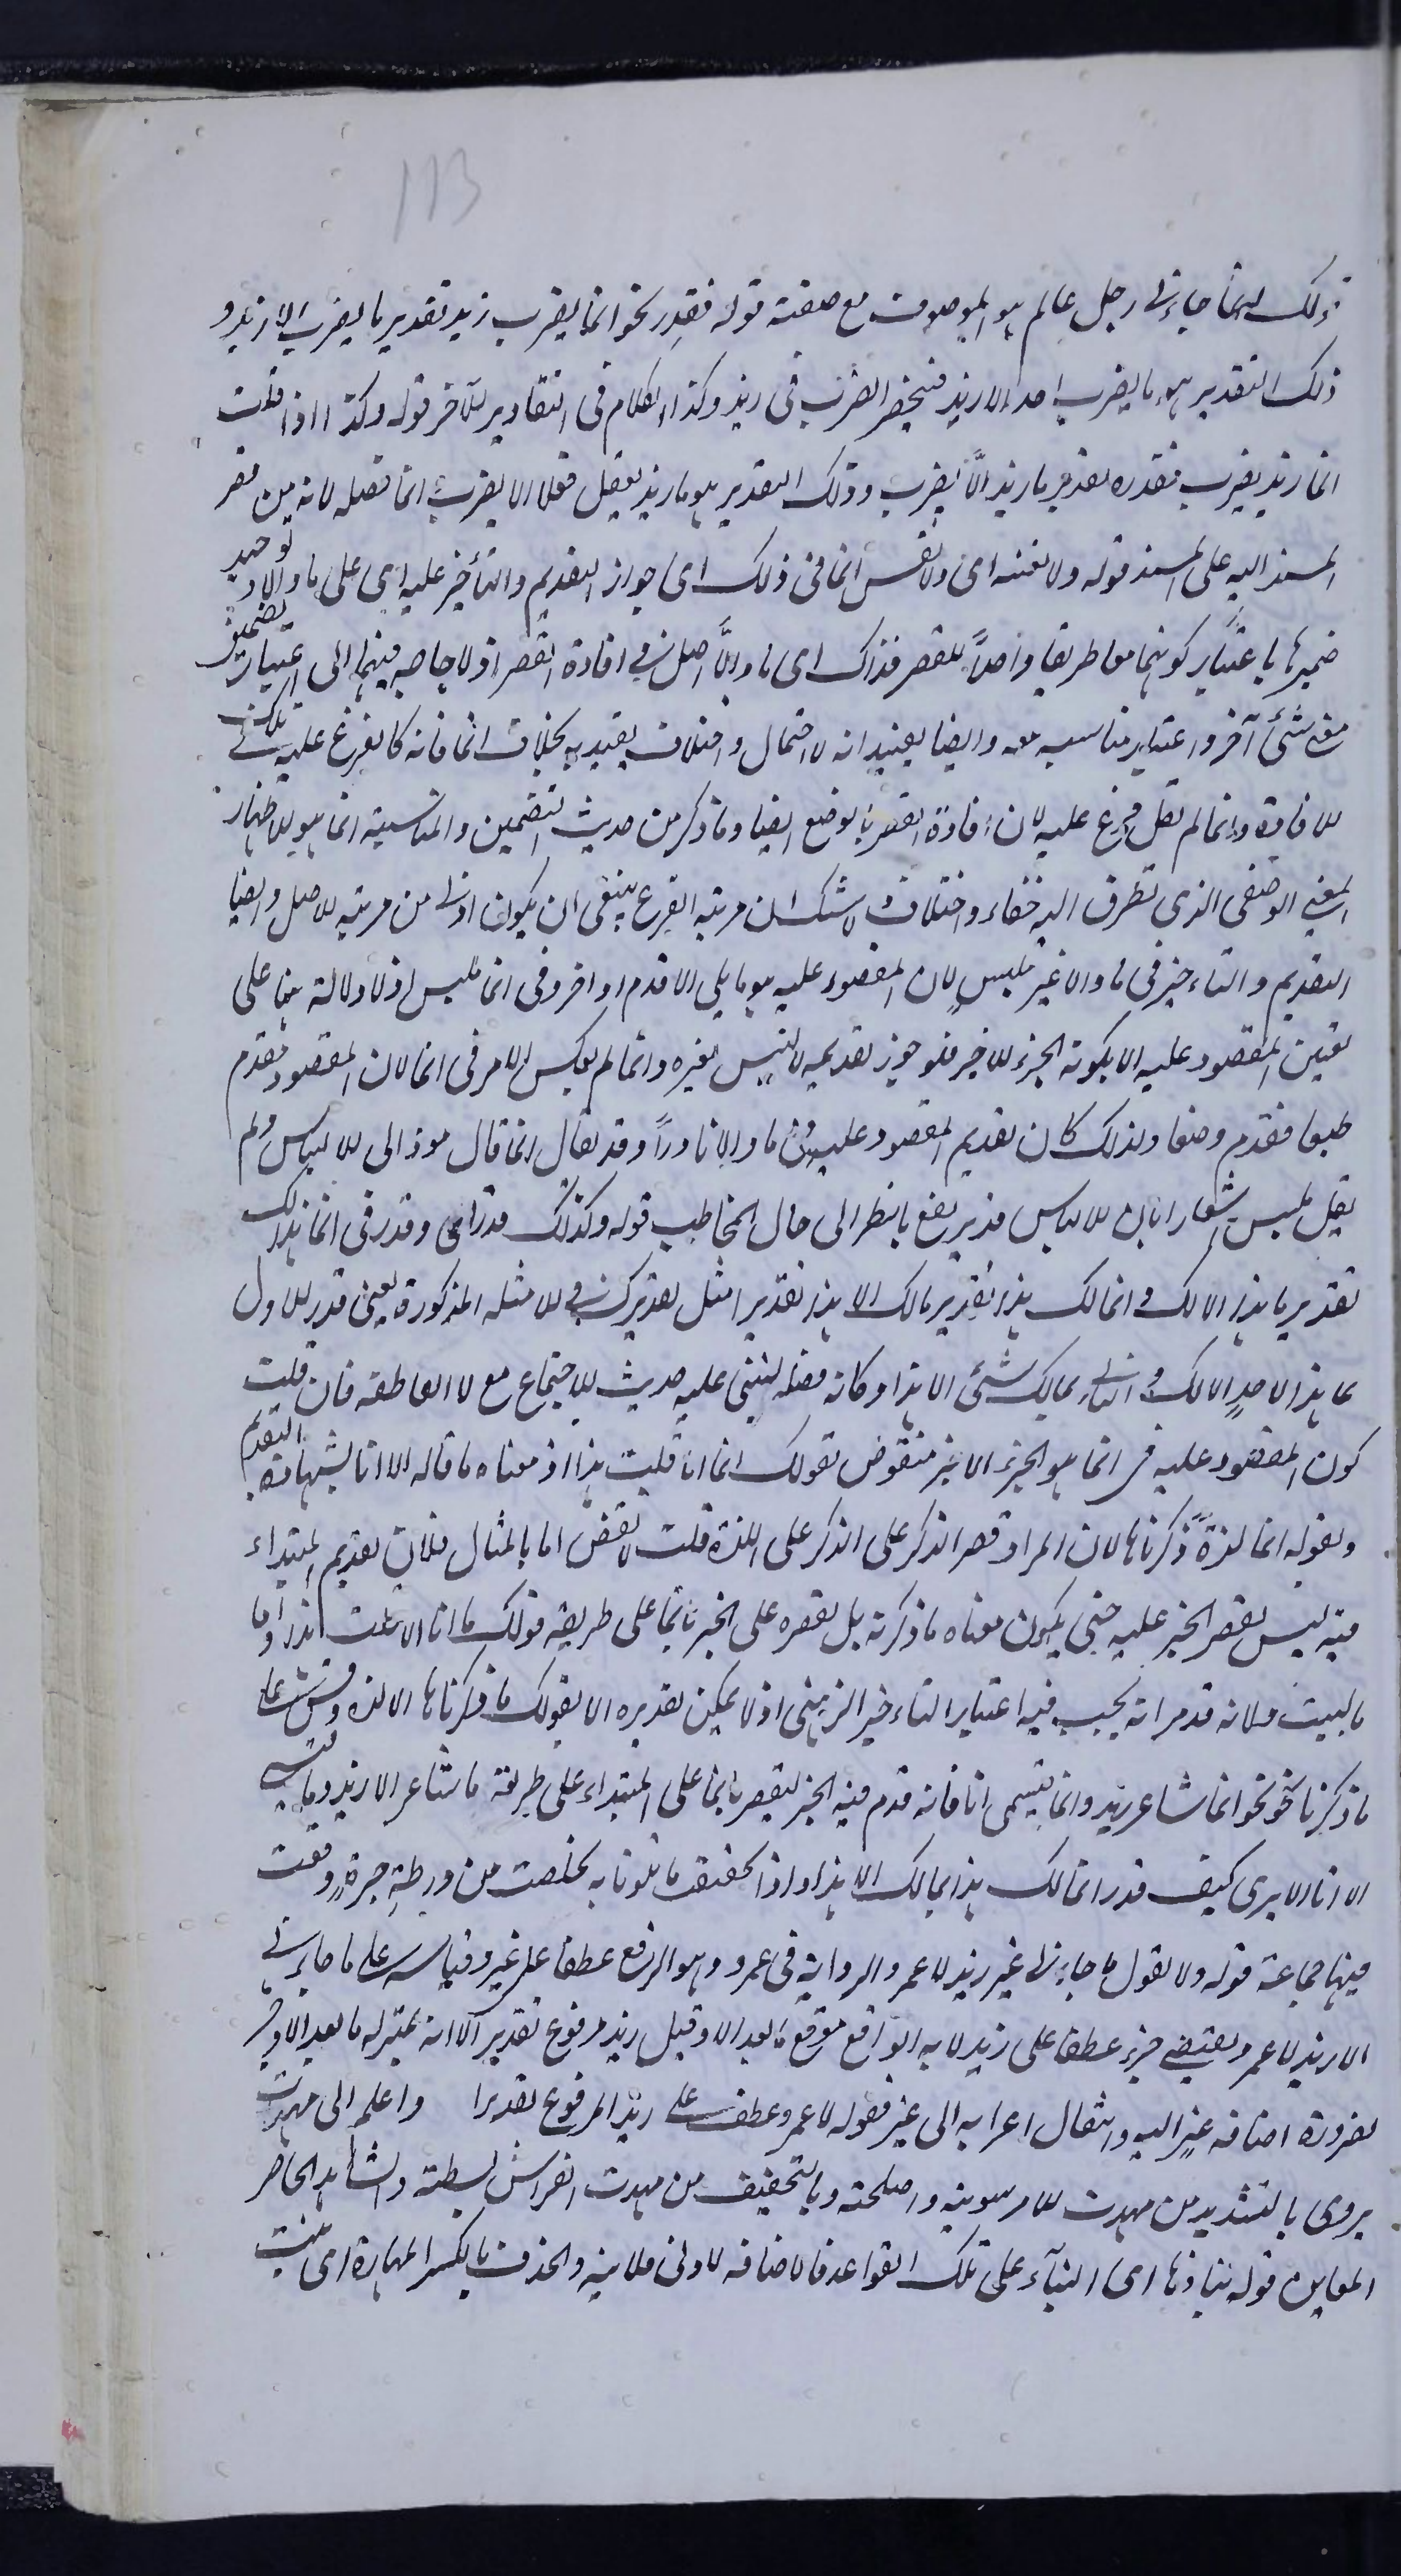 113
ذلك انما جاءنى رجل عالم هو الموصوف مع صفته قوله فقدر نحو انما يضرب زيد تقدير ما يضرب الا زيد و
ذلك التقدير هو ما يضرب احد الا زيد فينحصر الضرب فى زيد وكذا الكلام فى التقادير الآخر قوله وكذا اذا قلت
انما زيد يضرب فقدره تقدير ما زيد الّا يضرب وذلك التقدير هو ما زيد يفعل فعلا الا يضرب انما فصله لانه من قصر
المسند اليه على المسند قوله ولا تقسه اى ولا تقس انما فى ذلك اى جواز التقديم والتأخير عليه اى على ما والا و توحيد
ضميرها باعتبار كونهما معا طريقا واحداً للقصر فذاك اى ما والّا اصل فى افادة القصر اذ لا حاجه فيهما الى اعتبار تضمين
معنى شئ آخر واعتبار مناسب معه وايضا يفيد انه لا احتمال واختلاف يعتد به بخلاف انما فانه كالفرع عليه فى تلك
الافادة وانما لم يقل فرع عليه لان افادة القصر بالوضع ايضا وما ذكر من حديث التضمين والمناسبة انما هو لاظهار
المعنى الوضعى الذى تطرق اليه خفاء واختلاف ولا شك ان مرتبه الفرع ينبغى ان يكون ادنى من مرتبه الاصل وايضا
التقديم والتاءخير فى ما والا غير ملبس لان المقصور عليه هو ما يلى الا قدم او اخر وفى انما ملبس اذ لا دلالة هنا على
تعين المقصور عليه الا بكونه الجزء الاخير فلو جوز تقديمه لالتبس بغيره وانما لم يعكس الامر فى انما لان المقصور مقدم
طبعا فقدم وضعا ولذلك كان تقديم المقصور عليه فى ما والا نادراً وقد يقال انما قال مؤد الى الالباس ولم
يقل ملبس اشعارا بان الالباس قد يرتفع بالنظر الى حال المخاطب قوله وكذلك قدر اى وقدر فى انما هذا لك
تقدير ما هذا الا لك وانما لك هذا تقدير مالك الا هذا تقديرا مثل تقديرك فى الامثله المذكورة يعنى قدر الاول
ما هذا لاحدٍ الا لك والثانى مالك شئ الا هذا وكانه فصله ليبنى عليه حديث الاجتماع مع لا العاطفه فان قلت
كون المقصور عليه فى انما هو الجزء الاخير منقوض بقولك انما انا قلت هذا اذ معناه ما قاله الا انا بشهادة التقديم
وبقوله انما لذةً ذكرناها لان المراد قصر الذكر على الذكر على اللذة قلت لا نقض اما بالمثال فلان تقديم المبتداء
فيه ليس لقصر الخبر عليه حتى يكون معناه ما ذكرته بل لقصره على الخبر بانما على طريقه قولك ما انا الا قلت هذا واما
بالبيت فلانه قد مر انه يجب فيه اعتبار التاءخير الزمنى اذ لا يمكن تقديره الا بقولك ما ذكرناها الا لذة وقس على
ما ذكرنا نحو انما شاعر زيد وانما تميمى انا فانه قدم فيه الخبر ليقصر بانما على المبتداء على طريقة ما شاعر الا زيد وما تميمى
الا انا الا يرى كيف قدر انما لك هذا بمالك الا هذا واذا تحققت ما تلوناه تخلصت من ورطةِ حيرةٍ وقعت
فيها جماعة قوله ولا تقول ما جاءنى غير زيد لا عمرو الرواية فى عمرو هو الرفع عطفا على غير وقياسه على ما جاءنى
الا زيد لا عمرو يقتضى جره عطفا على زيد لانه الواقع موقع ما بعد الا وقيل زيد مرفوع تقديرا لانه بمنزله ما بعد الا وجر
لضرورة اضافه غير اليه وانتقال اعرابه الى غير فقوله لا عمرو عطف على زيد المرفوع تقديرا واعلم الى مهدت
يروى بالتشديد من مهدت الامر سويته واصلحته وبالتخفيف من مهدت الفراش بسطته والشاهد الحاضر
المعاين قوله بناؤها اى البناء على تلك القواعد فالاضافه لادنى ملابسه والحذف بالكسر المهارة اى